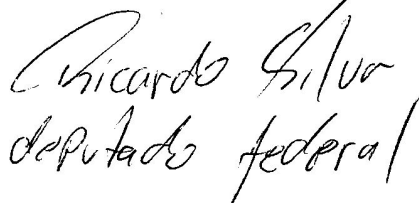 Ricardo Silva
deputado federal